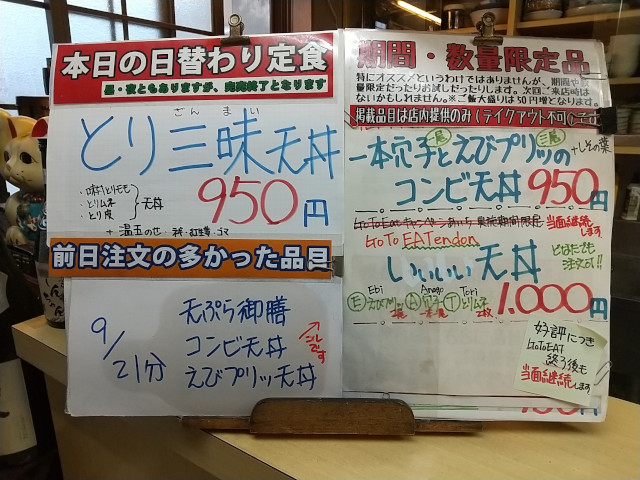 本日の日替わり定食
昼・夜ともありますが、完売終了となります
ざんまい
とり三昧天丼
・味付とりもも
・とりムネ
・とり皮
天丼
950円
+温玉のせ
前日注文の多かった品目
9/21分
天ぷら御膳
コンビ天丼
えびプリッ天丼
コレです
期間・数量限定品
特にオススメというわけではありませんが、期間や
量限定だったりお試しだったりします。次回ご来店時は
ないかもしれません。※ご飯大盛りは50円増となります。
掲載品目は店内提供のみ(テイクアウト不可)です
二尾
一本穴子とえびプリッの
+しその葉
コンビ天丼 950円
当面継続します。
GoTo EATendon
いいいい天丼
どなたでも
注文可!!
Ebi Anago Tori
E えびプリッ 2尾 A 穴子 一本 T とりムネ 2枚
1.000円
好評につき
GoToEAT
終了後も
当面継続します